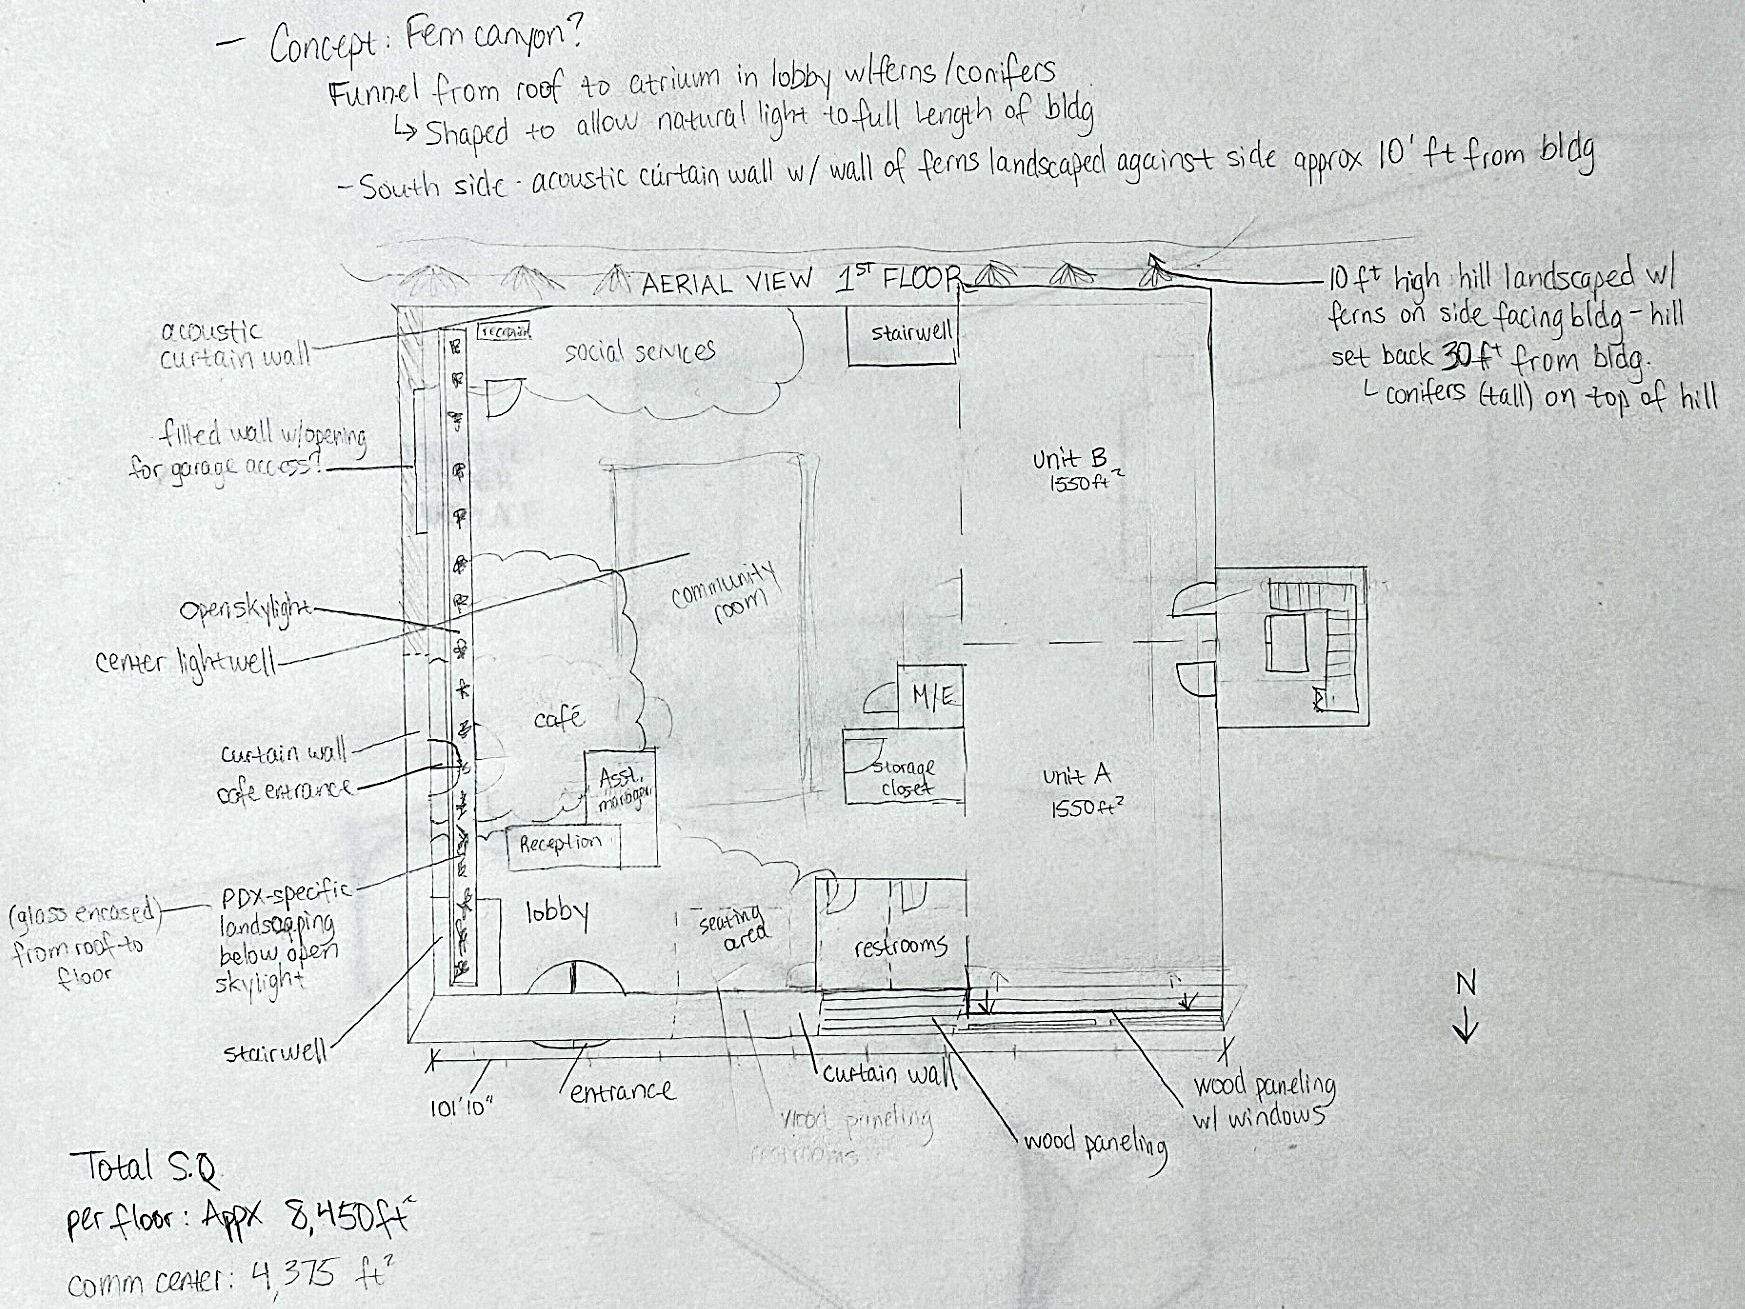 – Concept: Fern canyon?
Funnel from roof to atrium in lobby w/ferns/conifers
↳ Shaped to allow natural light to full length of bldg
– South side - acoustic curtain wall w/ wall of ferns landscaped against side approx 10' ft from bldg
AERIAL VIEW 1ST FLOOR
10ft high hill landscaped w/
ferns on side facing bldg – hill
set back 30ft from bldg.
└ conifers (tall) on top of hill
acoustic
curtain wall
reception
social services
stairwell
filled wall w/opening
for garage access?
Unit B
1550ft²
community
room
open skylight
center lightwell
café
M/E
curtain wall
cafe entrance
Asst.
manager
storage
closet
Unit A
1550ft²
Reception
(glass encased)
from roof to
floor
PDX-specific
landscaping
below open
skylight
lobby
seating
area
restrooms
N
stairwell
101'10"
entrance
curtain wall
wood paneling
restrooms
wood paneling
wood paneling
w/ windows
Total S.Q.
per floor: Appx 8,450ft²
comm center: 4,375 ft²